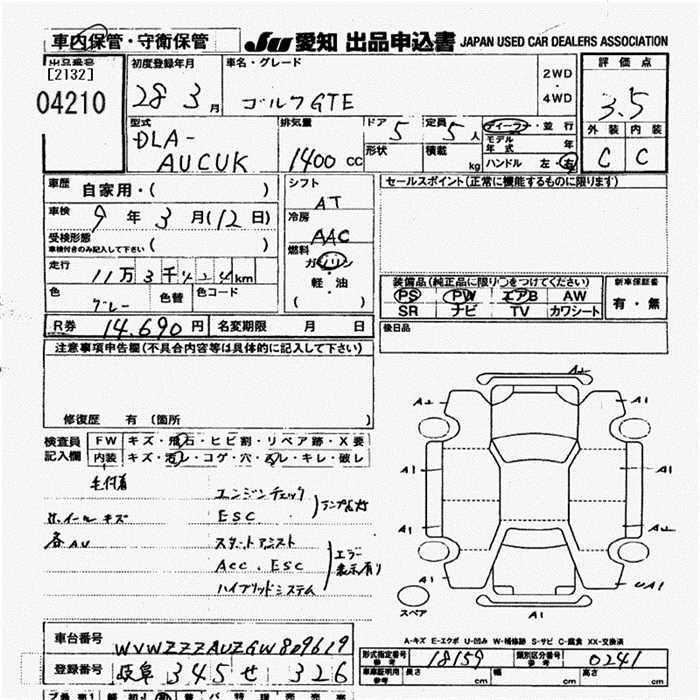 車内保管・守衛保管
JU 愛知 出品申込書 JAPAN USED CAR DEALERS ASSOCIATION
出品番号
[2132]
04210
初度登録年月
28 3月
車名・グレード
ゴルフGTE
2WD
・
4WD
評価点
3.5
外装 内装
C C
型式
DLA-
AUCUK
排気量
1400 cc
ドア 5
形状
定員 5 人
積載 kg
ディーラー・並行
モデル年式 年
ハンドル 左・右
車歴 自家用・( )
車検 9年 3月(12日)
受検形態
車検付きのみ記入して下さい ( )
走行 11万3千424km
色 グレー 色替 色コード
シフト
AT
冷房
AAC
燃料
ガソリン
・
軽・油
( )
セールスポイント(正常に機能するものに限ります)
装備品(純正品に限り○をつけてください)
PS PW エアB AW
SR ナビ TV カワシート
新車保証書
有・無
R券 14.690円 名変期限 月 日
後日品
注意事項申告欄(不具合内容等は具体的に記入して下さい)
修復歴 有 (箇所 )
検査員
記入欄
FW キズ・飛石・ヒビ割・リペア跡・X要
内装 キズ・汚レ・コゲ・穴・スレ・キレ・破レ
毛付着
ホイールキズ
各AU
エンジンチェック
ESC
ランプ点灯
スタートアシスト
ACC.ESC
ハイブリッドシステム
エラー
表示有り
A2 A1
A1 A1
A1 A2
A1 UA1
A1
スペア
A-キズ E-エクボ U-凹み W-補修跡 S-サビ C-腐食 XX-交換済
車台番号 WVWZZZAUZGW809619
登録番号 岐阜 345 せ 326
形式指定番号 参考 18159
類別区分番号 参考 0241
車庫証明用 参考 長さ cm 幅 cm 高さ cm